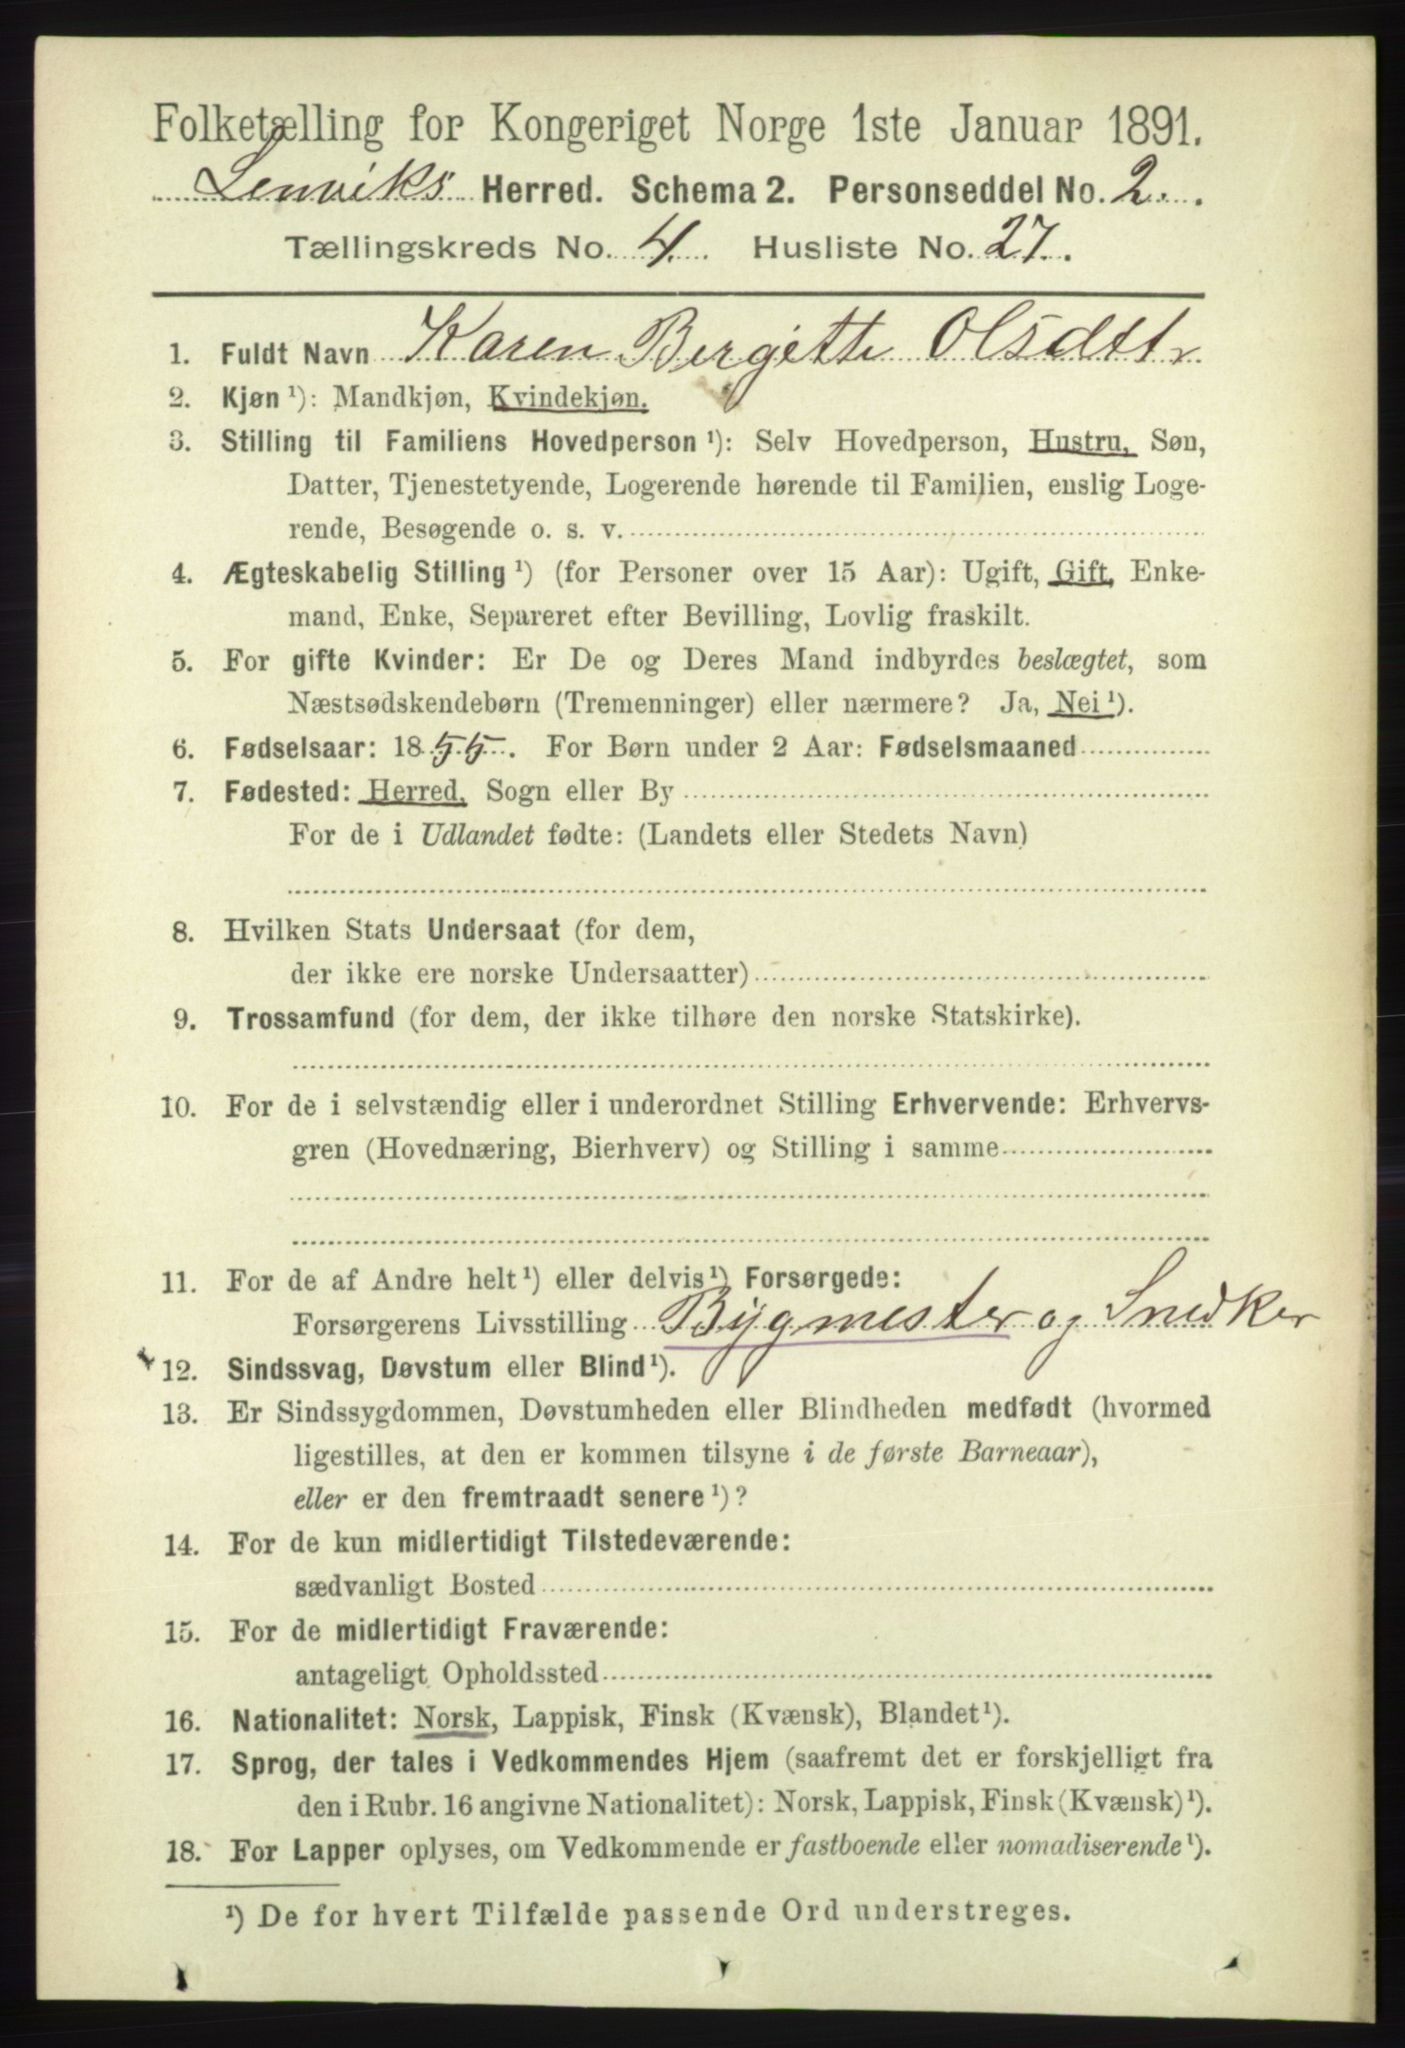 Folketælling for Kongeriget Norge 1ste Januar 1891.
Lenviks Herred. Schema 2. Personseddel No. 2.
Tællingskreds No. 4. Husliste No. 27.
1. Fuldt Navn Karen Bergitte Olsdtr
2. Kjøn ¹): Mandkjøn, Kvindekjøn.
3. Stilling til Familiens Hovedperson ¹): Selv Hovedperson, Hustru, Søn,
Datter, Tjenestetyende, Logerende hørende til Familien, enslig Loge-
rende, Besøgende o. s. v.
4. Ægteskabelig Stilling ¹) (for Personer over 15 Aar): Ugift, Gift, Enke-
mand, Enke, Separeret efter Bevilling, Lovlig fraskilt.
5. For gifte Kvinder: Er De og Deres Mand indbyrdes beslægtet, som
Næstsødskendebørn (Tremenninger) eller nærmere? Ja, Nei ¹).
6. Fødselsaar: 1855. For Børn under 2 Aar: Fødselsmaaned
7. Fødested: Herred, Sogn eller By
For de i Udlandet fødte: (Landets eller Stedets Navn)
8. Hvilken Stats Undersaat (for dem,
der ikke ere norske Undersaatter)
9. Trossamfund (for dem, der ikke tilhøre den norske Statskirke).
10. For de i selvstændig eller i underordnet Stilling Erhvervende: Erhvervs-
gren (Hovednæring, Bierhverv) og Stilling i samme
11. For de af Andre helt ¹) eller delvis ¹) Forsørgede:
Forsørgerens Livsstilling Bygmester og Snedker
12. Sindssvag, Døvstum eller Blind ¹).
13. Er Sindssygdommen, Døvstumheden eller Blindheden medfødt (hvormed
ligestilles, at den er kommen tilsyne i de første Barneaar),
eller er den fremtraadt senere ¹)?
14. For de kun midlertidigt Tilstedeværende:
sædvanligt Bosted
15. For de midlertidigt Fraværende:
antageligt Opholdssted
16. Nationalitet: Norsk, Lappisk, Finsk (Kvænsk), Blandet ¹).
17. Sprog, der tales i Vedkommendes Hjem (saafremt det er forskjelligt fra
den i Rubr. 16 angivne Nationalitet): Norsk, Lappisk, Finsk (Kvænsk) ¹).
18. For Lapper oplyses, om Vedkommende er fastboende eller nomadiserende ¹).
¹) De for hvert Tilfælde passende Ord understreges.